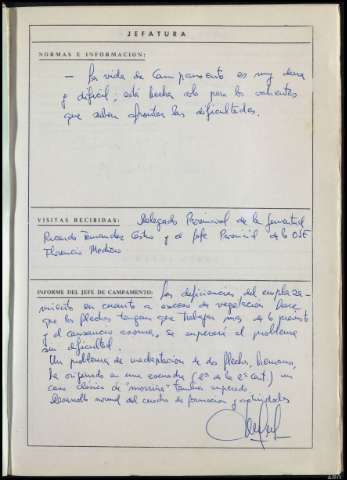 JEFATURA
NORMAS E INFORMACION:
- La vida de Campamento es muy dura
y difícil; está hecha solo para los valientes
que saben afrontar las dificultades.
VISITAS RECIBIDAS: Delegado Provincial de la Juventud
Ricardo Fernandez Castro y el Jefe Provincial de la OJE
Florencio Medicio
INFORME DEL JEFE DE CAMPAMENTO: Las deficiencias del empla za-
miento en cuanto a exceso de vegetacion hace
que los flechas tengan que trabajar mas de lo previsto
y el cansancio asoma, se superará el problema
sin dificultad.
Un problema de inadaptacion de dos flechas, hermanos,
ha originado en una escuadra (2ª de la 2ª cent.) un
caso clásico de "morriña" tambien superado
Desarrollo normal del cuadro de formacion y actividades